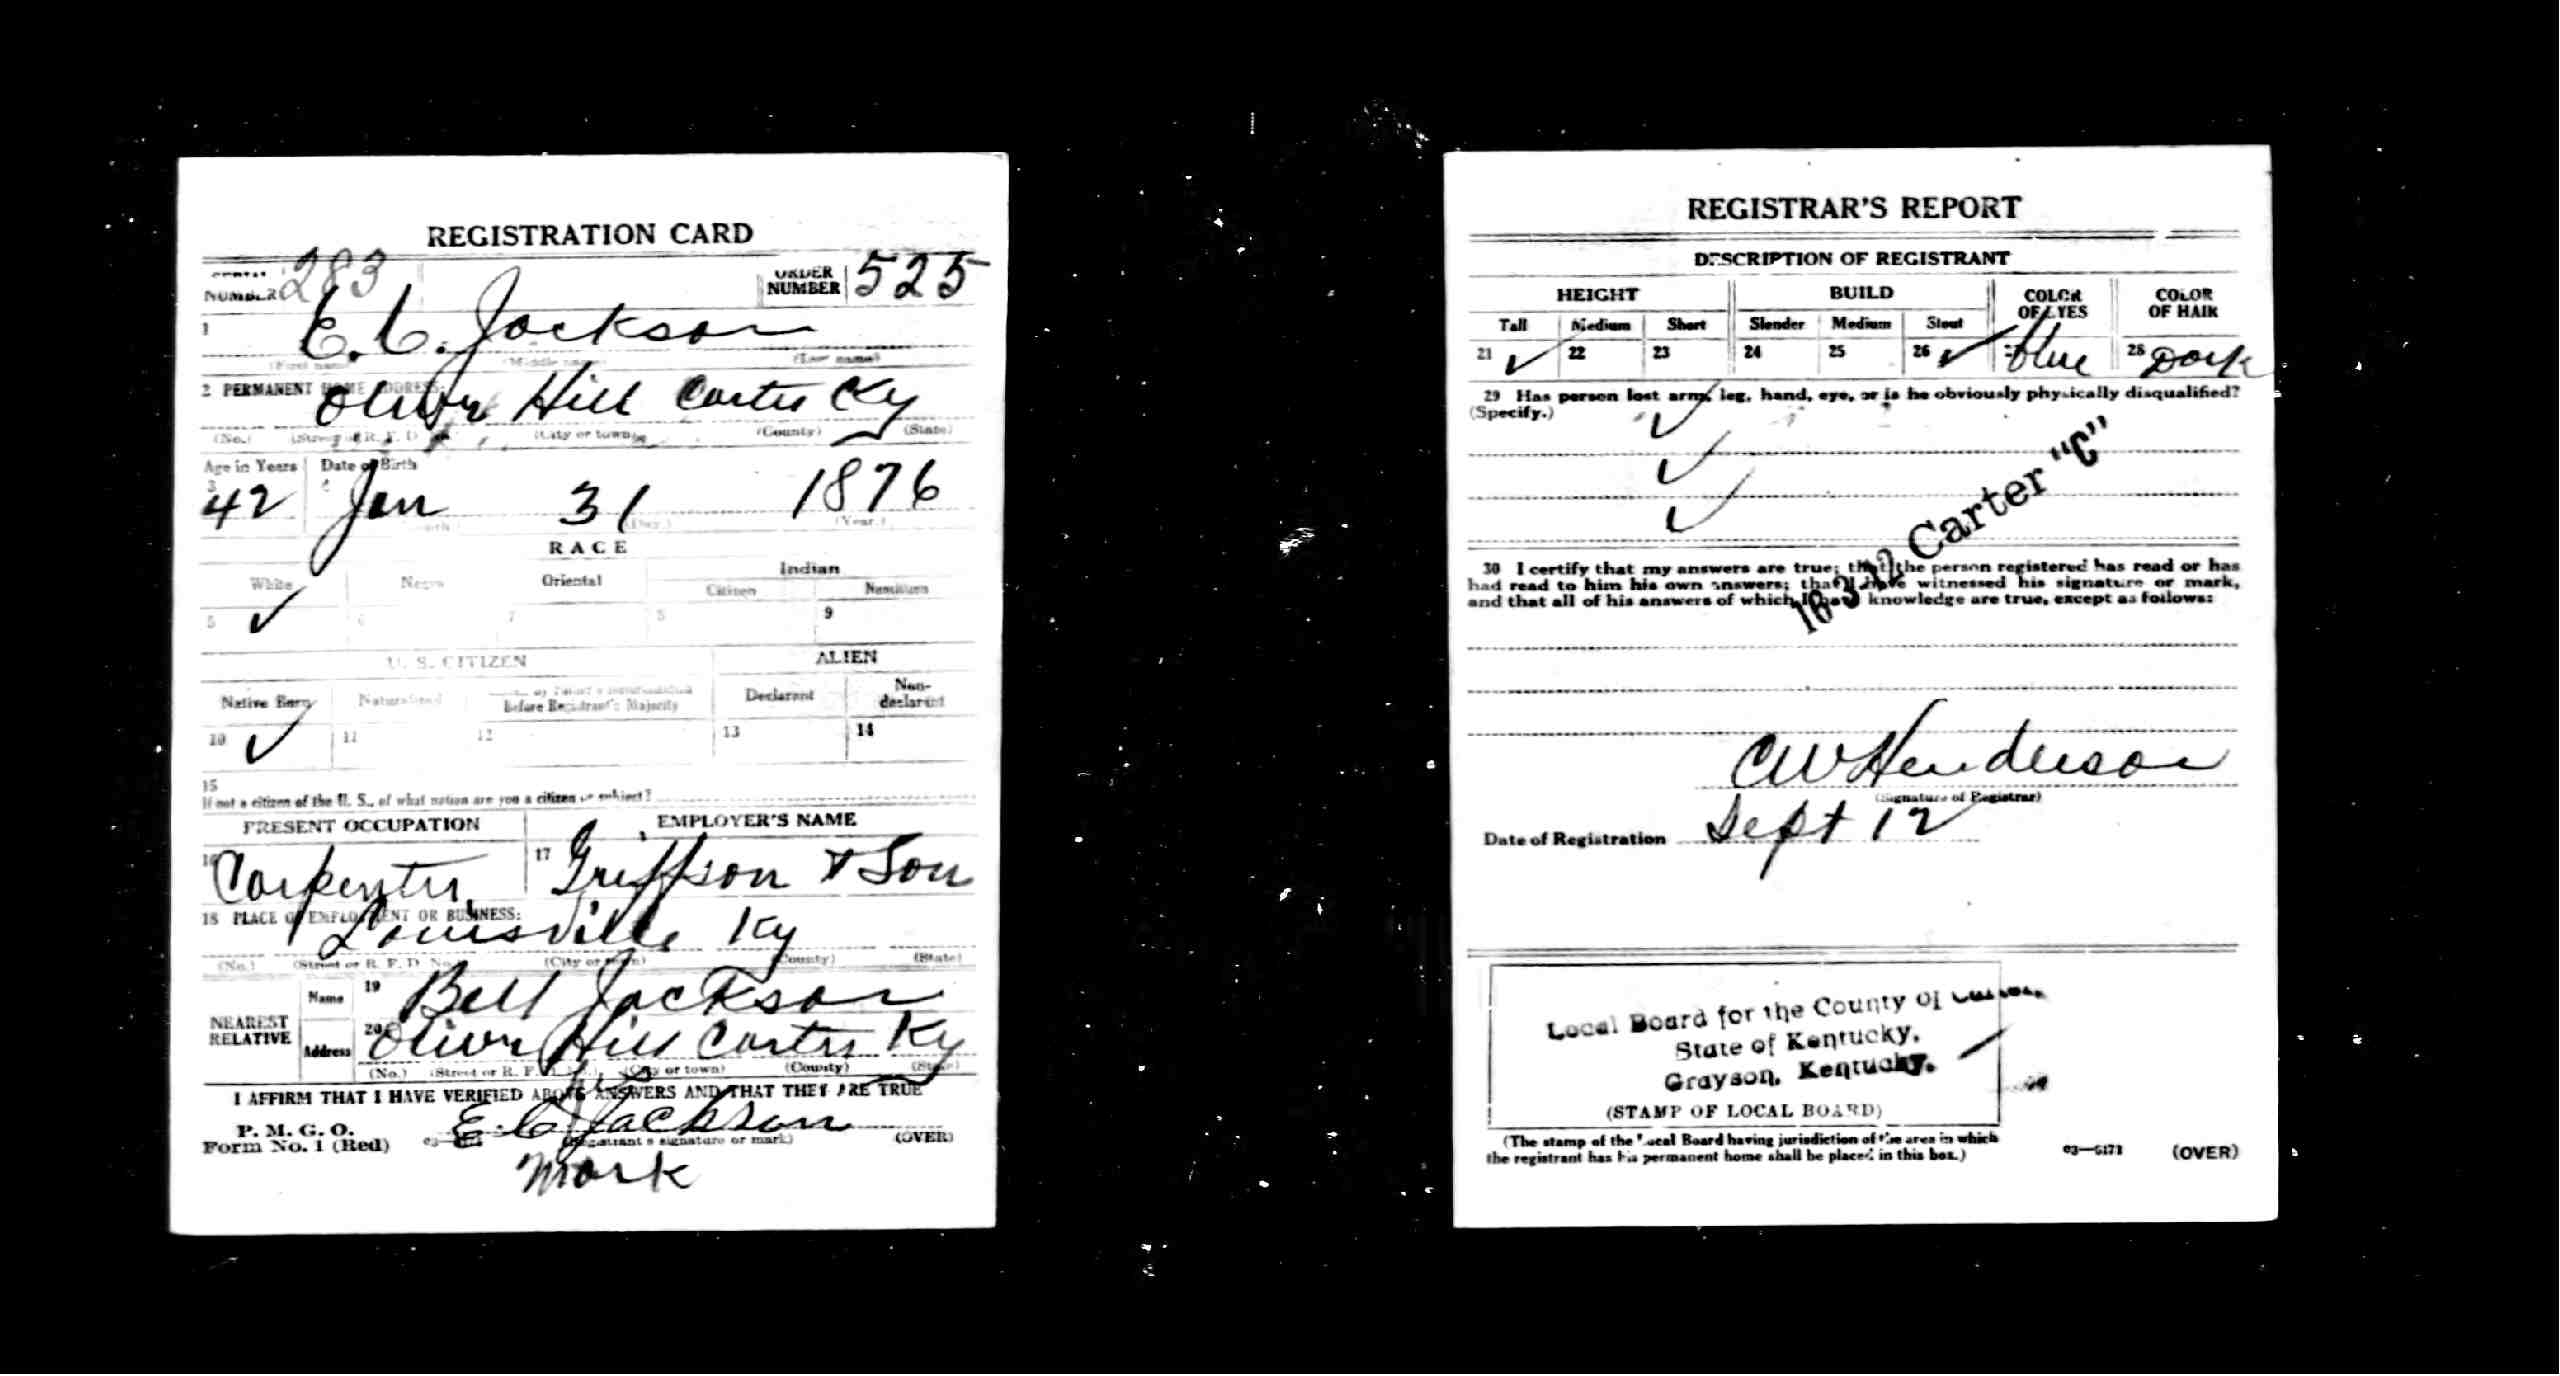 REGISTRATION CARD
NUMBER 283 ORDER NUMBER 525
1 E. C. Jackson
(First name) (Middle name) (Last name)
2 PERMANENT HOME ADDRESS:
Olivr Hill Carter Ky
(No.) (Street or R. F. D. (City or town) (County) (State)
Age in Years Date of Birth
3 42 4 Jan 31 1876
(Day.) (Year.)
RACE
White Negro Oriental Indian
Citizen Noncitizen
5 ✓ 6 7 8 9
U. S. CITIZEN ALIEN
Native Born Naturalized Before Registrant's Majority Declarant Non-declarant
10 ✓ 11 12 13 14
15
If not a citizen of the U. S., of what nation are you a citizen or subject?
PRESENT OCCUPATION EMPLOYER'S NAME
16 Carpenter 17 Griffson & Son
18 PLACE OF EMPLOYMENT OR BUSINESS:
Louisville Ky
(No.) (Street or R. F. D. No.) (City or town) (County) (State)
NEAREST RELATIVE
Name 19 Bell Jackson
Address 20 Olivr Hill Carter Ky
(No.) (Street or R. F. D. (City or town) (County) (State)
I AFFIRM THAT I HAVE VERIFIED ABOVE ANSWERS AND THAT THEY ARE TRUE
P. M. G. O.
Form No. 1 (Red) E. C. Jackson
(Registrant's signature or mark) (OVER)
mark
REGISTRAR'S REPORT
DESCRIPTION OF REGISTRANT
HEIGHT BUILD COLOR OF EYES COLOR OF HAIR
Tall Medium Short Slender Medium Stout
21 ✓ 22 23 24 25 26 ✓ blue 28 Dark
29 Has person lost arm, leg, hand, eye, or is he obviously physically disqualified?
(Specify.)
16 3 12 Carter "C"
30 I certify that my answers are true; that the person registered has read or has
had read to him his own answers; that I have witnessed his signature or mark,
and that all of his answers of which I have knowledge are true, except as follows:
C W Henderson
(Signature of Registrar)
Date of Registration Sept 12
Local Board for the County of
State of Kentucky,
Grayson, Kentucky.
(STAMP OF LOCAL BOARD)
(The stamp of the Local Board having jurisdiction of the area in which
the registrant has his permanent home shall be placed in this box.)
03—6171 (OVER)